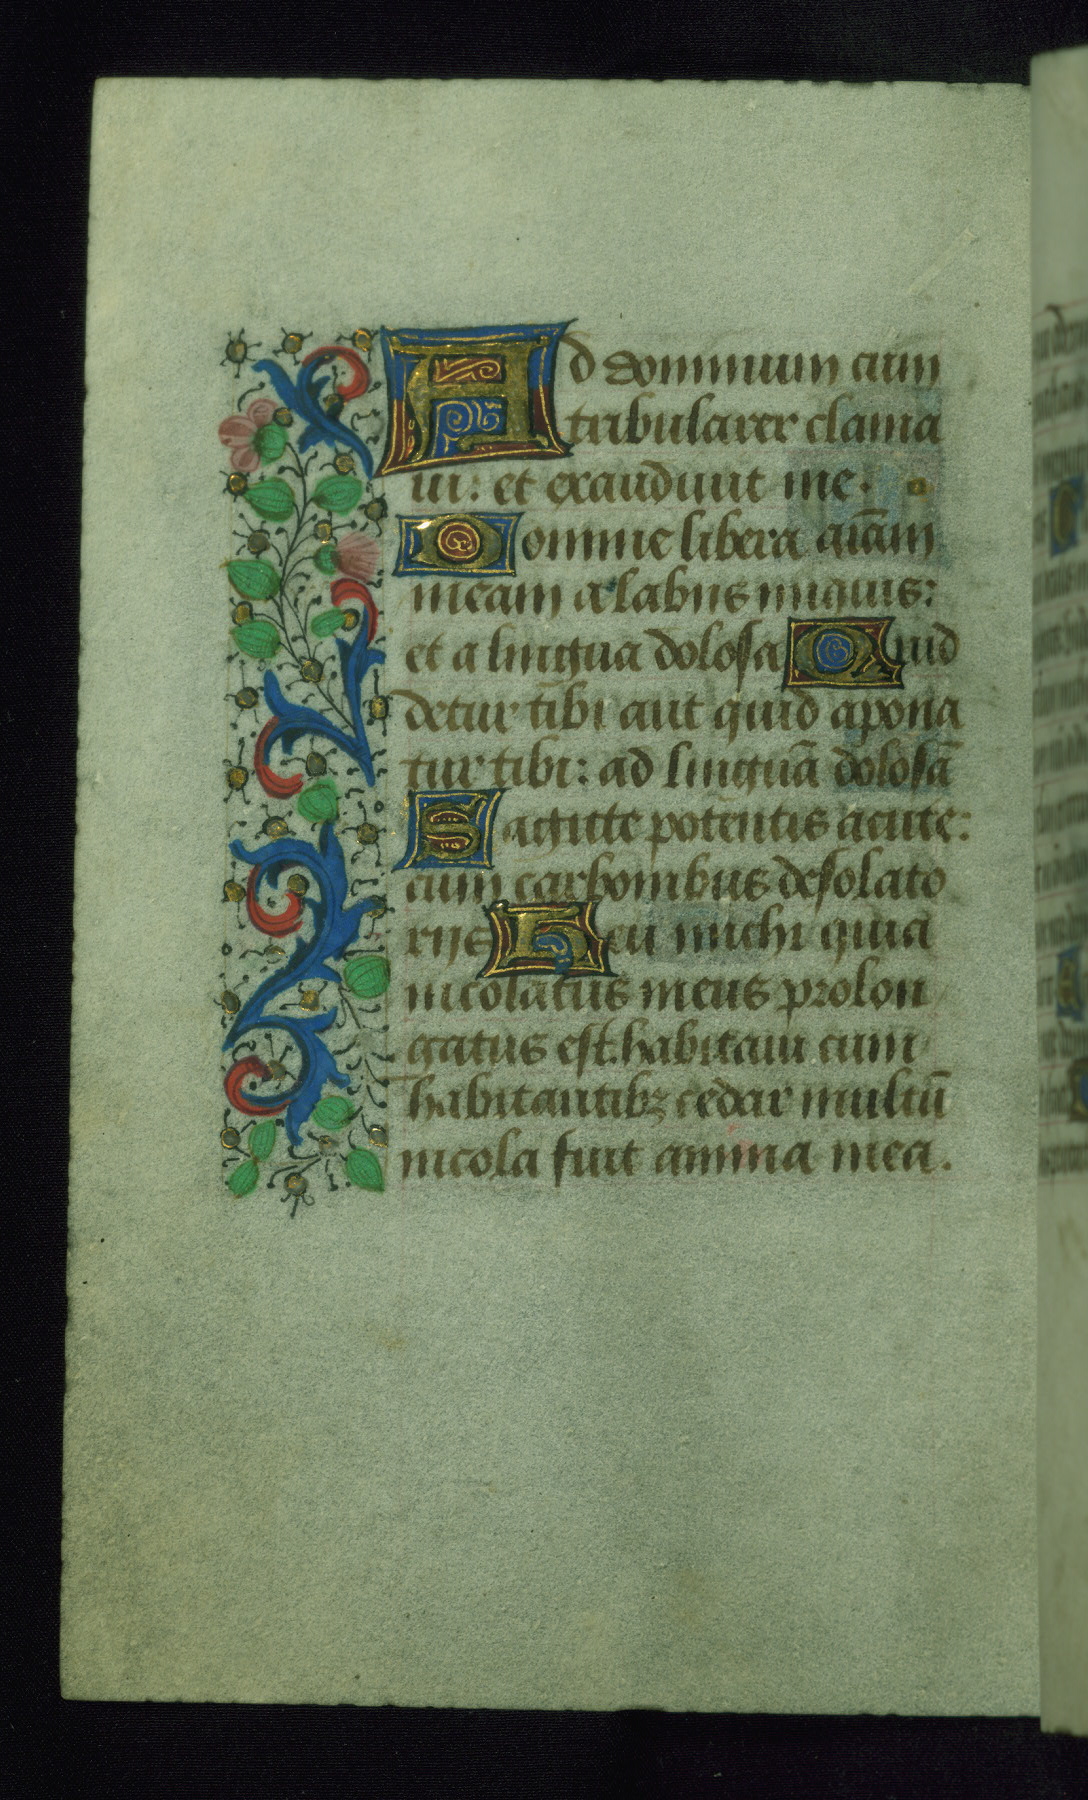 Ad dominum cum
tribularer clama
ui: et exaudiuit me.
Domine libera aīam
meam a labiis iniquis:
et a lingua dolosa Quid
detur tibi aut quid apona
tur tibi: ad linguā dolosā
Sagitte potentis acute:
cum carbonibus desolato
riis Heu michi quia
incolatus meus prolon
gatus est. habitaui cum
habitantibꝫ cedar multū
incola fuit anima mea.